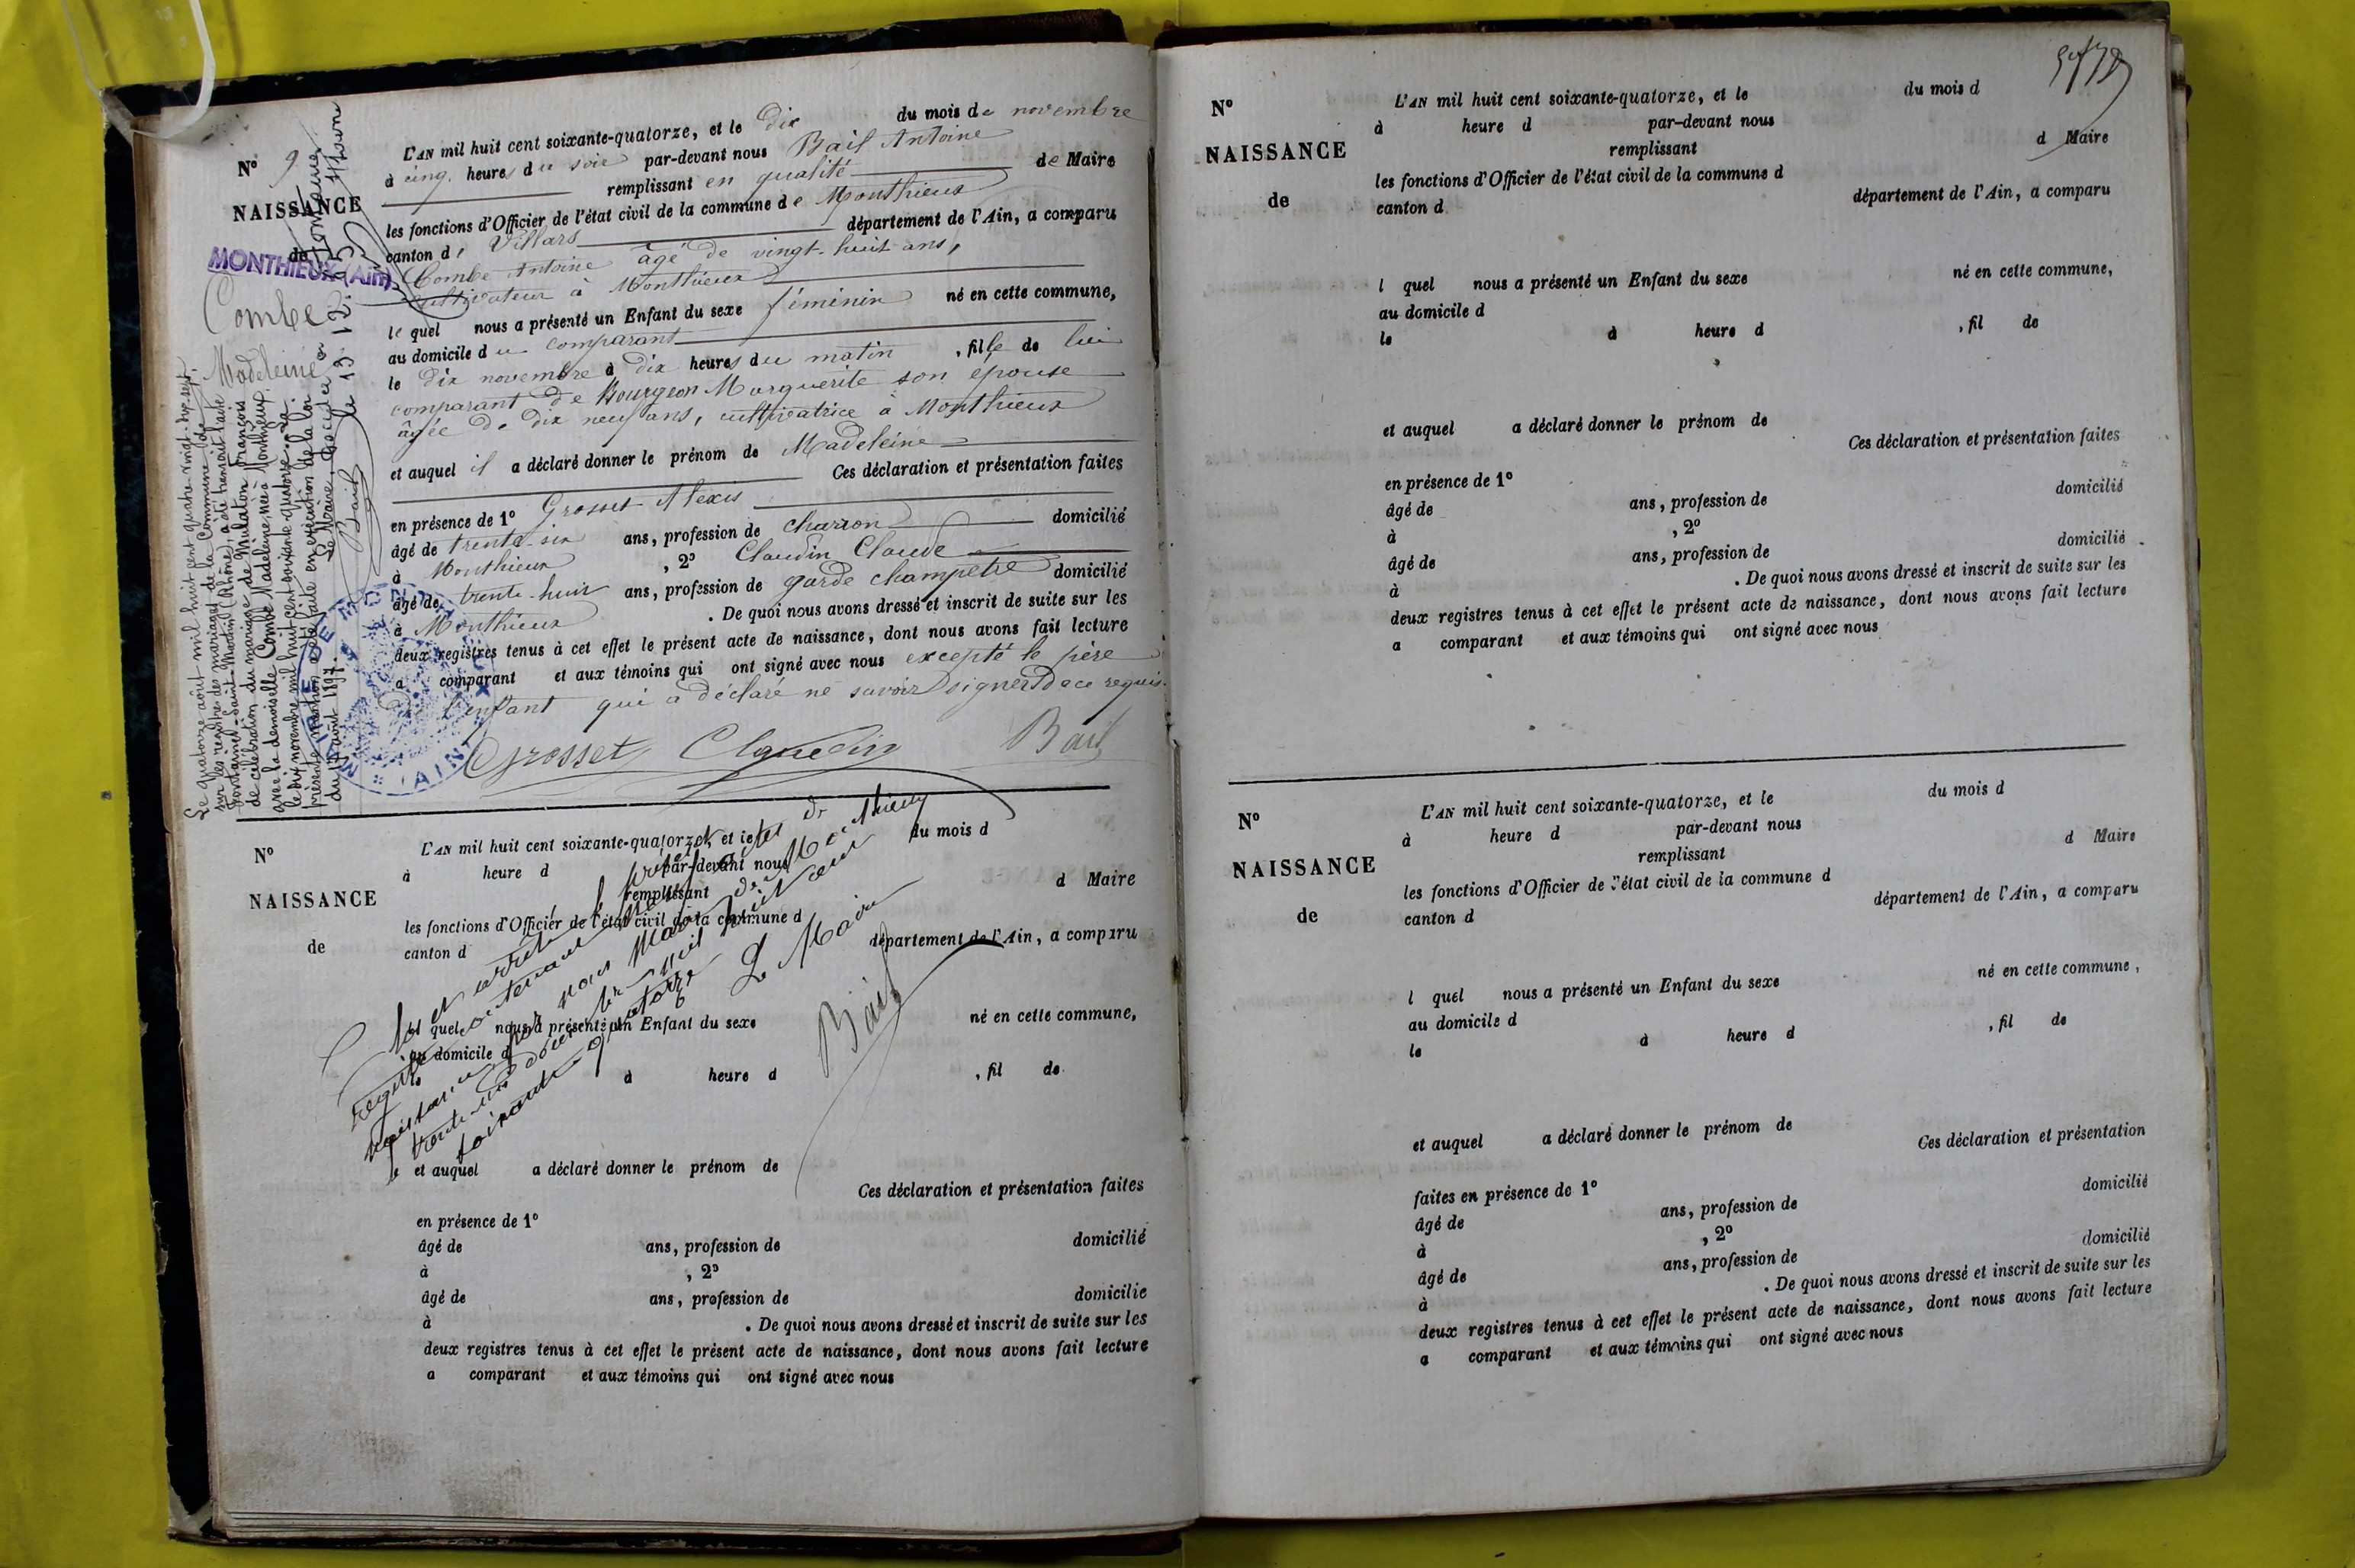 N° 9
NAISSANCE
de
MONTHIEUX (Ain)
Combe
Madeleine
L'AN mil huit cent soixante-quatorze, et le dix du mois de novembre
à cinq heures du soir par-devant nous Bail Antoine
remplissant en qualité de Maire
les fonctions d'Officier de l'état civil de la commune de Monthieux
canton de Villars département de l'Ain, a comparu
Combe Antoine âgé de vingt-huit ans,
cultivateur à Monthieux
le quel nous a présenté un Enfant du sexe féminin né en cette commune,
au domicile du comparant
le dix novembre à dix heures du matin, fille de lui
comparant de Bourgeon Marguerite son épouse
âgée de dix neuf ans, cultivatrice à Monthieux
et auquel il a déclaré donner le prénom de Madeleine
Ces déclaration et présentation faites
en présence de 1° Grosset Alexis
âgé de trente-six ans, profession de charron domicilié
à Monthieux, 2° Claudin Claude
âgé de trente-huit ans, profession de garde champetre domicilié
à Monthieux. De quoi nous avons dressé et inscrit de suite sur les
deux registres tenus à cet effet le présent acte de naissance, dont nous avons fait lecture
a comparant et aux témoins qui ont signé avec nous excepté le père
de l'enfant qui a déclaré ne savoir signer de ce requis.
Grosset Claudin Bail
Le quatorze août mil huit cent quatre-vingt-dix-sept,
sur les registres des mariages de la Commune de
Fontaines-Saint-Martin (Rhône), a été transcrit l'acte
de célébration du mariage de Mulaton François
avec la demoiselle Combe Madeleine, née à Monthieux
le dix novembre mil huit cent soixante-quatorze.
présente mention a été faite en exécution de la loi
du 17 août 1897.
Le Maire,
Bail
le 13. 12.
N°
NAISSANCE
de
L'AN mil huit cent soixante-quatorze, et le du mois d
à heure d par-devant nous
remplissant d Maire
les fonctions d'Officier de l'état civil de la commune d
canton d département de l'Ain, a comparu
l quel nous a présenté un Enfant du sexe né en cette commune,
au domicile d
le à heure d , fil de
et auquel a déclaré donner le prénom de
Ces déclaration et présentation faites
en présence de 1°
âgé de ans, profession de domicilié
à , 2°
âgé de ans, profession de domicilié
à . De quoi nous avons dressé et inscrit de suite sur les
deux registres tenus à cet effet le présent acte de naissance, dont nous avons fait lecture
a comparant et aux témoins qui ont signé avec nous
Clos et arrêté le présent
registre des actes de
naissance par nous Maire de Monthieux
trente-un décembre mil huit cent
soixante-quatorze
Le Maire
Bail
N°
NAISSANCE
de
L'AN mil huit cent soixante-quatorze, et le du mois d
à heure d par-devant nous
remplissant d Maire
les fonctions d'Officier de l'état civil de la commune d
canton d département de l'Ain, a comparu
l quel nous a présenté un Enfant du sexe né en cette commune,
au domicile d
le à heure d , fil de
et auquel a déclaré donner le prénom de
Ces déclaration et présentation faites
en présence de 1°
âgé de ans, profession de domicilié
à , 2°
âgé de ans, profession de domicilié
à . De quoi nous avons dressé et inscrit de suite sur les
deux registres tenus à cet effet le présent acte de naissance, dont nous avons fait lecture
a comparant et aux témoins qui ont signé avec nous
N°
NAISSANCE
de
L'AN mil huit cent soixante-quatorze, et le du mois d
à heure d par-devant nous
remplissant d Maire
les fonctions d'Officier de l'état civil de la commune d
canton d département de l'Ain, a comparu
l quel nous a présenté un Enfant du sexe né en cette commune,
au domicile d
le à heure d , fil de
et auquel a déclaré donner le prénom de
Ces déclaration et présentation
faites en présence de 1°
âgé de ans, profession de domicilié
à , 2°
âgé de ans, profession de domicilié
à . De quoi nous avons dressé et inscrit de suite sur les
deux registres tenus à cet effet le présent acte de naissance, dont nous avons fait lecture
a comparant et aux témoins qui ont signé avec nous